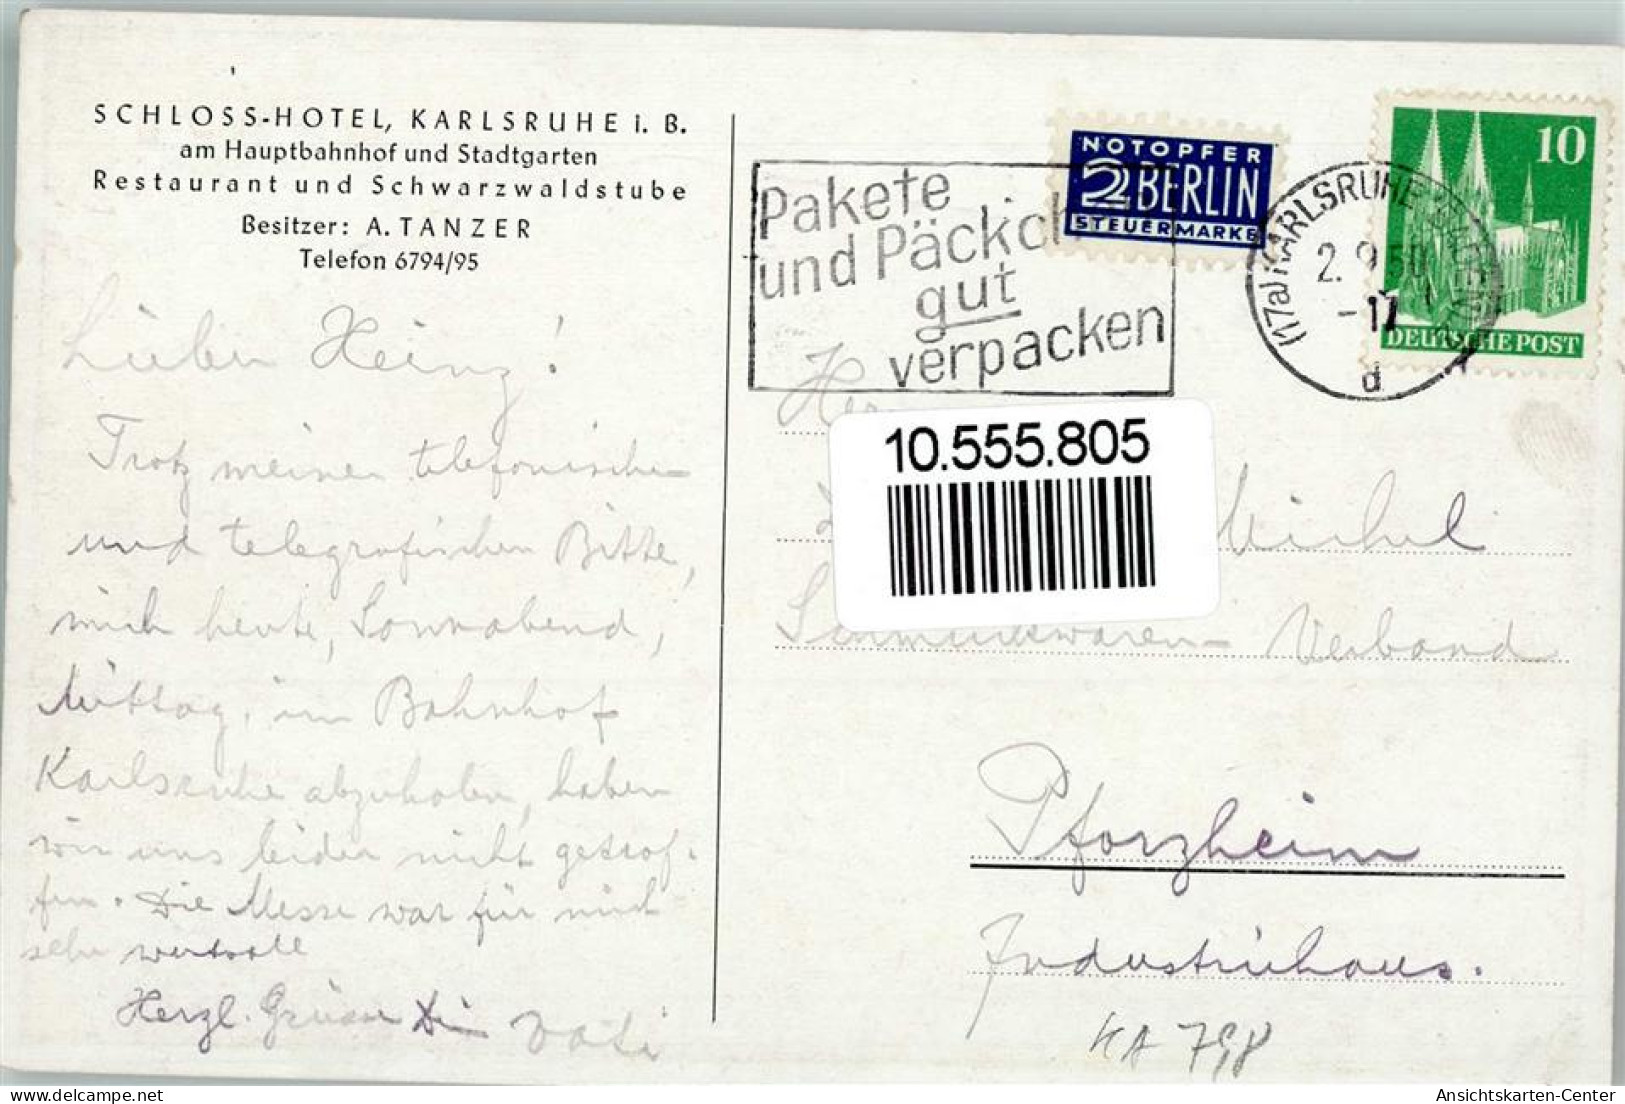 SCHLOSS-HOTEL, KARLSRUHE i. B.
am Hauptbahnhof und Stadtgarten
Restaurant und Schwarzwaldstube
Besitzer: A. TANZER
Telefon 6794/95
Lieber Heinz!
Trotz meiner telefonischen
und telegrafischen Bitte,
mich heute, Sonnabend,
Mittag, im Bahnhof
Karlsruhe abzuholen, haben
wir uns leider nicht getrof-
fen. Die Messe war für mich
sehr wertvoll
Herzl. Grüsse Dein Vati
Pakete
und Päckch
gut
verpacken
NOTOPFER
2 BERLIN
STEUERMARKE
(17a) KARLSRUHE
2. 9. 50
-17
d
10
DEUTSCHE POST
10.555.805
Michel
Schmuckwaren-Verband
Pforzheim
Industriehaus.
KA 798
Ansichtskarten-Center